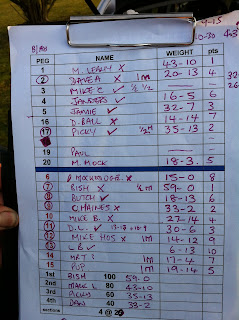 PEG NAME WEIGHT pts
M. LEARY X 43-10 1
2 X 1m 20-13 4
3 MIKE C ✓ 1/2
4 JAKERS ✓ 16-5 6
5 JAMIE ✓ 32-7 3
16 D. BALL X 14-14 7
17 PICKY ✓ 1/2M 35-13 2
19 PAUL
20 M. MOCK 18-3. 5
6 15-0 8
7 BISH X 59-0 1
8 BUTCH ✓ 18-13 6
9 C. HAINES X 33-2 2
10 MIKE B. X 27-14 4
11 D.L. ✓ 30-6 3
12 MIKE HOS X 1m 14-12 9
13 L B ✓ 6-13 10
14 MAT 1m 17-4 7
15 POP 1m 19-14 5
1st BISH 100 59-0
2nd MARK L 80 43-10
3rd PICKY 60 35-13
4th 40 33-2
sections 4 @ 20